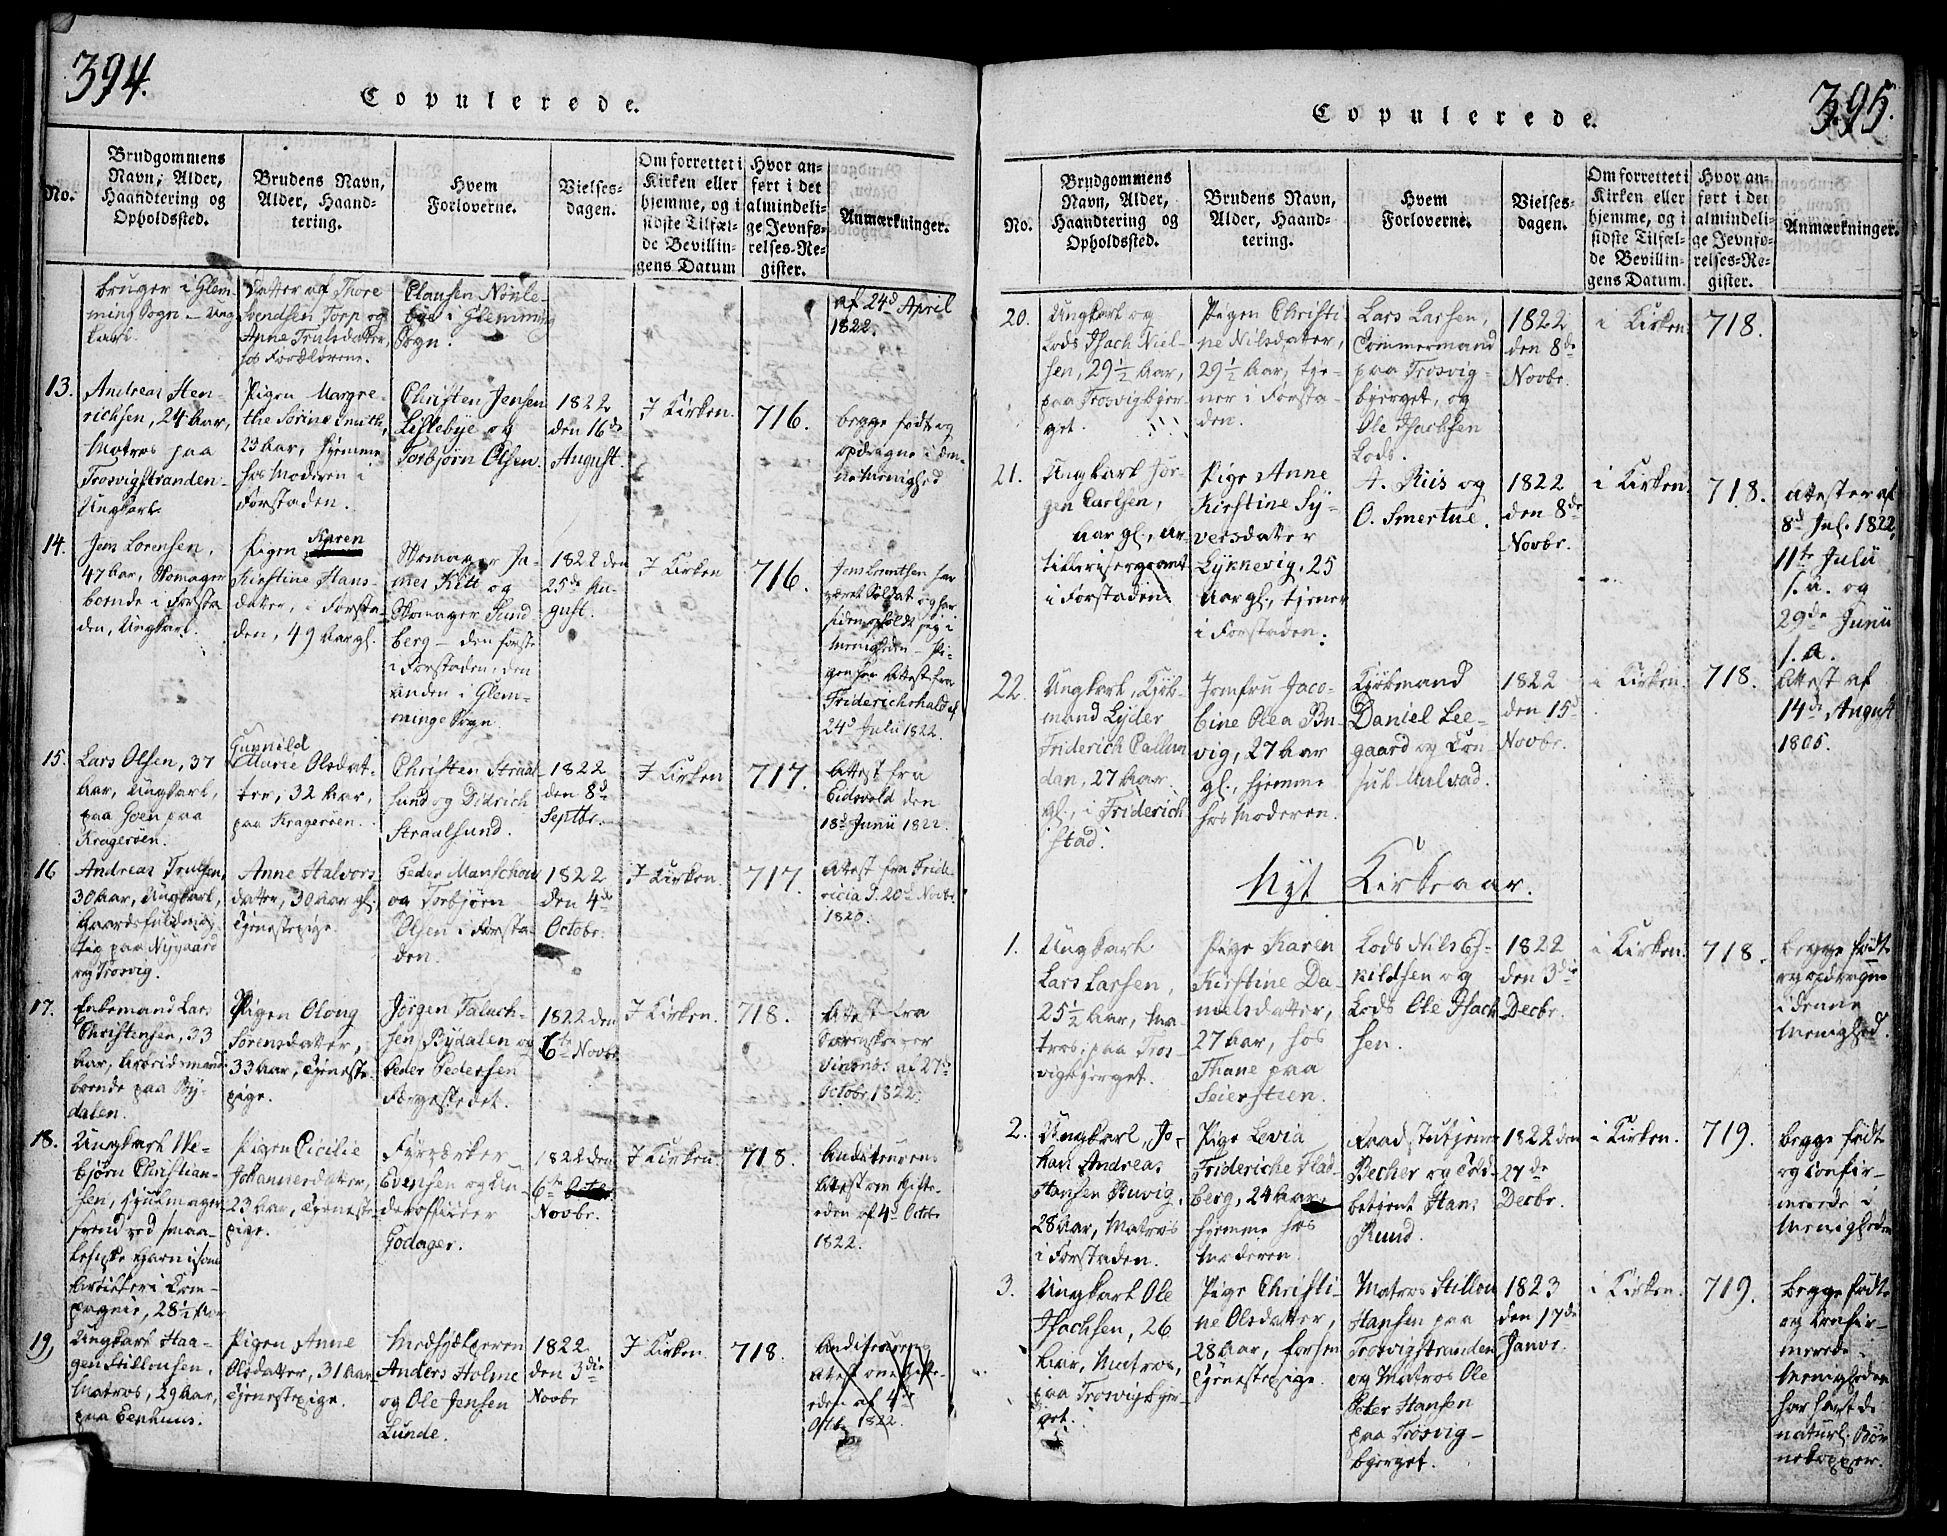 394.
Copulerede.
No.
Brudgommens
Navn, Alder,
Haandtering og
Opholdssted.
Brudens Navn,
Alder, Haand-
tering.
Hvem
Forloverne.
Vielses-
dagen.
Om forrettet i
Kirken eller
hjemme, og i
sidste Tilfæl-
de Bevillin-
gens Datum
Hvor an-
ført i det
almindeli-
ge Jevnfø-
relses-Re-
gister.
Anmærkninger.
bruger i Glem-
ming Sogn – Ung
karl.
Datter af Thore
Svendsen Torp og
Anne Trulsdatter,
hos Forældrene.
Clausen Nøkle-
bye i Glemming
Sogn.
af 24d April
1822.
13.
Andreas Hen-
richsen, 24 Aar,
Matros paa
Trosvigstranden
Ungkarl.
Pigen Margre-
the Sørine Smith,
23 Aar, hjemme
hos Moderen i
Forstaden.
Christen Jensen
Lislebye og
Torbjørn Olsen.
1822
den 16de
August.
I Kirken.
716.
begge født og
opdragne i den-
ne Menighed
14.
Jens Lorensen,
47 Aar, Skomager
boende i Forsta
den, Ungkarl.
Pigen Karen
Kirstine Hans-
datter, i Forsta-
den, 49 Aar gl.
Skomager Ja-
mes Kitt og
Skomager Sund-
berg – den første
i Forstaden, den
anden i Glem-
minge Sogn.
1822 den
25de Au-
gust.
I Kirken
716.
Jens Lorentsen har
været Soldat og har
siden opholdt sig i
Menigheden – Pi-
gen har Attest fra
Friderichshald af
24d Julii 1822.
15.
Lars Olsen, 37
Aar, Ungkarl,
paa Goen paa
Kragerøen.
Gunnild
Marie Olsdat-
ter, 32 Aar,
paa Kragerøen.
Christen Straal-
sund og Didrich
Straalsund.
1822
den 8d
Septbr.
I Kirken
717.
Attest fra
Eidsvold den
18d Junii 1822.
16
Andreas Trulsen,
30 Aar, Ungkarl,
Gaardsfuldmæg-
tig paa Nygaard
og Trosvig.
Anne Halvors
datter, 30 Aar gl.
Tjenestepige.
Peder Manschou
og Torbjørn
Olsen i Forsta-
den.
1822
den 4de
Octobr.
I Kirken.
717.
Attest fra Fride-
ricia d. 20d Novbr.
1820.
17.
Enkemand Lars
Christensen, 33
Aar, Arbeidsmand
boende paa By-
dalen.
Pigen Olong
Sørensdatter,
33 Aar, Tjeneste-
pige.
Jørgen Taluch-
sen Bydalen og
Peder Pedersen
Færgestedet.
1822 den
6te Novbr
I Kirken.
718.
Attest fra
af 27de
Octobr 1822.
18.
Ungkarl We-
bjørn Christian-
sen, Hjulmager-
28½ Aar
Pigen Cicilie
Johannesdatter,
23 Aar, Tjeneste-
pige.
Fyrværker
Evensen og Un-
derofficier
Godager.
1822 den
6te
Novbr.
I Kirken.
718.
Auditeurens
Attest om Gifte-
eden af 4d Octobr
1822.
19,
Ungkarl Haa-
gen Stillousen,
Matros, 29 Aar,
paa Eenhuus.
Pigen Anne
Olsdatter, 31 Aar
Tjenestepige.
Medhjelperen
Anders Holme
og Ole Jensen
Lunde.
1822
den 3die
Novbr
I Kirken.
718.
Auditeurens
Attest om Gifte-
eden af 4de
Octbr 1822.
395.
Copulerede.
No.
Brudgommens
Navn, Alder,
Haandtering og
Opholdssted.
Brudens Navn,
Alder, Haand-
tering.
Hvem
Forloverne.
Vielses-
dagen.
Om forrettet i
Kirken eller
hjemme, og i
sidste Tilfæl-
de Bevillin-
gens Datum.
Hvor an-
ført i det
almindeli-
ge Jevnfø-
relses-Re-
gister.
Anmærkninger.
20.
Ungkarl og
Lods Isach Niel-
sen, 29½ Aar,
paa Trosvigbjer-
get.
Pigen Christi-
ne Nilsdatter,
29½ Aar, tje-
ner i Forsta-
den.
Lars Larsen,
Tømmermand
paa Trosvig-
bjerget, og
Ole Isachsen
Lods.
1822
den 8de
Novbr.
i Kirken
718.
21.
Ungkarl Jør-
gen Carlsen,
Aar gl., Ar-
tillerisergeant
i Forstaden.
Pige Anne
Kirstine Sy-
versdatter
Lykkevig, 25
Aar gl., tjener
i Forstaden.
A. Riis og
O. Smertue.
1822
den 8de
Novbr.
i Kirken.
718.
Attester af
8d Jul. 1822,
11te Julii
s. a. og
29de Junii
s. a.
22.
Ungkarl, Kjøb-
mand Lyder
Friderich Pallu-
dan, 27 Aar
gl., i Friderich
stad.
Jomfru Jaco-
bine Olea Bu-
vig, 27 Aar
gl., hjemme
hos Moderen.
Kjøbmand
Daniel Lee-
gaard og Kon-
sul Mulvad.
1822
den 15d
Novbr.
i Kirken.
718.
Attest af
14de August
1806.
Nyt Kirkeaar.
1.
Ungkarl
Lars Larsen,
25½ Aar, Ma-
tros; paa Tros-
vigbjerget.
Pige Karen
Kirstine Da-
nielsdatter,
27 Aar, hos
Thane paa
Seiersteen.
Lods Nils Es-
kildsen og
Lods Ole Isach
sen.
1822
den 3die
Decbr.
i Kirken.
718.
begge født
og opdragne
i denne
Menighed.
2.
Ungkarl, Jo-
han Andreas
Hansen Buvig,
28 Aar, Matros
i Forstaden.
Pige Levia
Friderike Flad-
berg, 24 Aar,
hjemme hos
Moderen.
Raadstutjener
Becher og Told-
betjent Hans
Ruud.
1822 den
27de
Decbr.
i Kirken.
719.
begge født
og confir-
merede i
Menigheden
3.
Ungkarl Ole
Isachsen, 26
Aar, Matros,
paa Trosvigbjer-
get.
Pige Christi-
ne Olsdatter,
28 Aar, forhen
Tjenestepige.
Matros Stillou
Hansen paa
Trosvigstranden
og Matros Ole
Peter Hansen
paa Trosvig-
bjerget.
1823
den 17de
Janvr.
i Kirken.
719.
begge født
og confir-
merede i
Menigheden
har havt de
naturl. Bør-
nekopper.